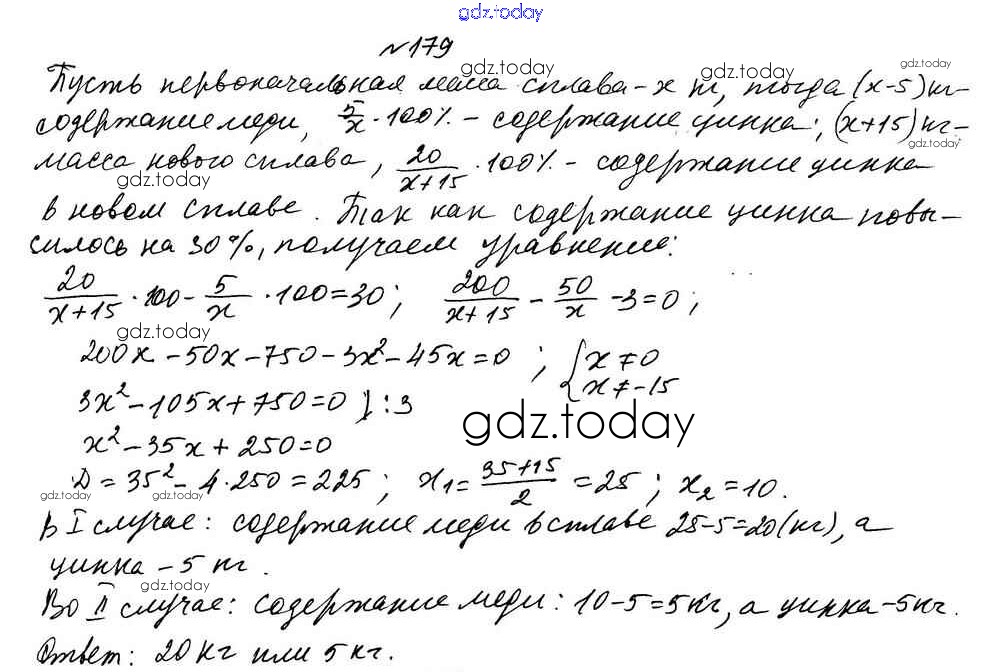 gdz.today
№179
gdz.today gdz.today
Пусть первоначальная масса сплава - x кг, тогда (x-5) кг-
содержание меди, 5/x · 100% - содержание цинка; (x+15) кг-
gdz.today
масса нового сплава, 20/(x+15) · 100% - содержание цинка
gdz.today
в новом сплаве. Так как содержание цинка повы-
силось на 30%, получаем уравнение:
20/(x+15) · 100 - 5/x · 100 = 30; 200/(x+15) - 50/x - 3 = 0;
gdz.today
200x - 50x - 750 - 3x² - 45x = 0; { x ≠ 0
x ≠ -15
3x² - 105x + 750 = 0 ) : 3
gdz.today
x² - 35x + 250 = 0
Д = 35² - 4·250 = 225; x₁ = (35+15)/2 = 25; x₂ = 10.
gdz.today gdz.today gdz.today
В I случае: содержание меди в сплаве 25-5=20(кг), а
цинка - 5 кг.
gdz.today
Во II случае: содержание меди: 10-5=5кг, а цинка-5кг.
Ответ: 20 кг или 5 кг.